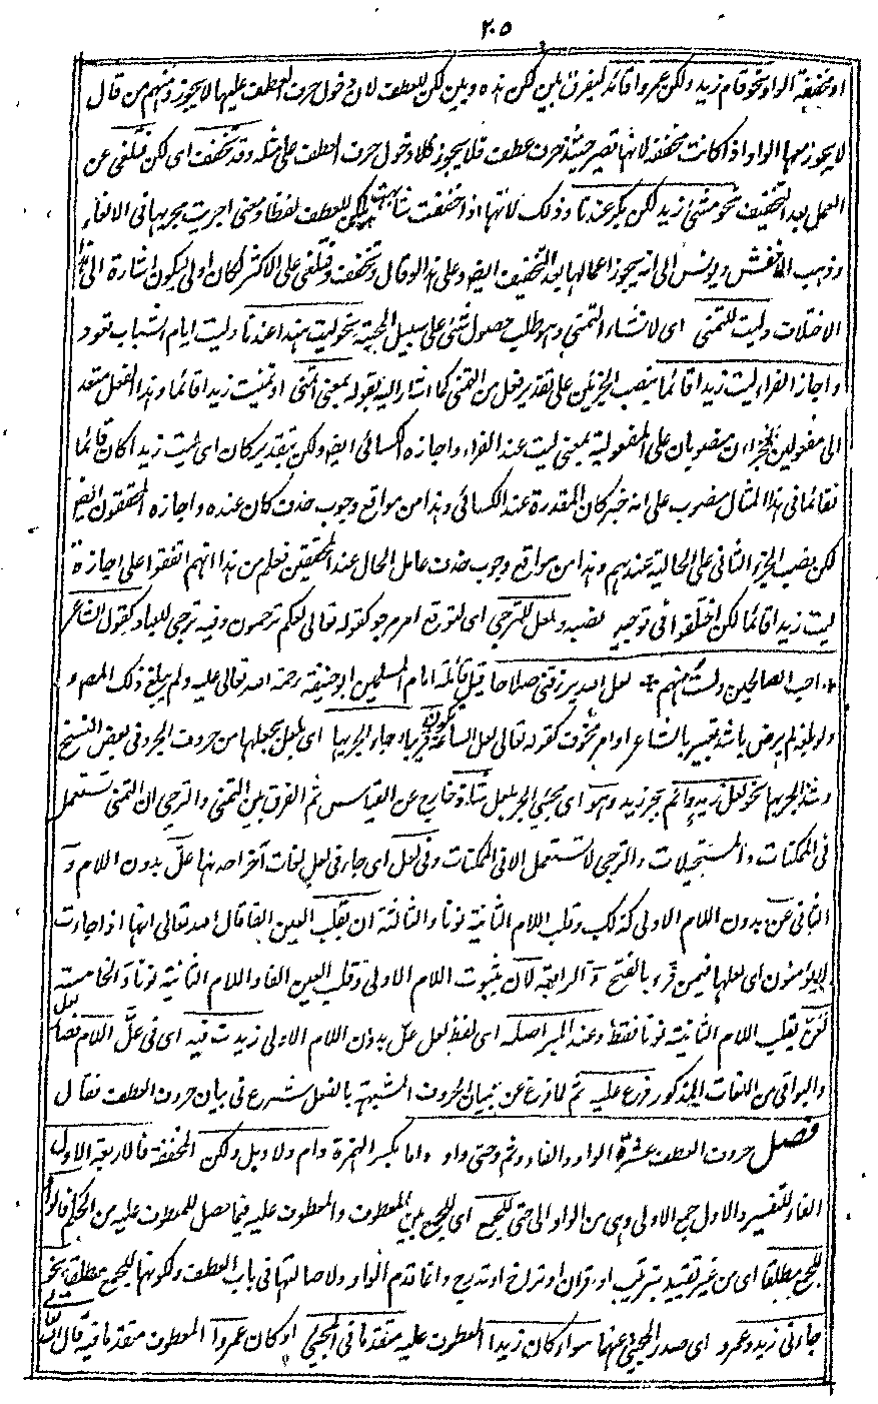 ٢٠٥
او مخففة الواو نحو قام زيد ولكن عمروا قائد ليفرق بين لكن هذه وبين لكن للعطف لان دخول حرف العطف عليها لا يجوز ومنهم من قال
لا يجوز معها الواو اذا كانت مخففة لانها تصير حينئذ حرف عطف فلا يجوز كلا دخول حرف العطف على مثله وقد تخفف اى لكن فتلغى عن
العمل بعد التخفيف نحو مشى زيد لكن بكر عندنا وذلك لانها اذا خففت شابهت بلكن للعطف لفظا ومعنى اجريت مجريها فى الالغاء
وذهب الاخفش ويونس الى انه يجوز اعمالها بعد التخفيف ايضا وعلى هذا لو قال وتخفف وتلغى على الاكثر لكان اولى ليكون اشارة الى
الاختلاف وليت للتمنى اى لانشاء التمنى وهو طلب حصول شئ على سبيل المحبة نحو ليت هندا عندنا وليت ايام الشباب تعود
واجاز الفراء ليت زيدا قائما بنصب الجزئين على تقدير فعل من التمنى كما اشار اليه بقوله بمعنى اتمنى او تمنيت زيدا قائما وهذا الفعل متعد
الى مفعولين فالجزءان منصوبان على المفعولية بمعنى ليت عند الفراء واجازه الكسائى ايضا ولكن بتقدير كان اى ليت زيدا كان قائما
فقائما فى هذا المثال منصوب على انه خبر كان المقدرة عند الكسائى وهذا من مواقع وجوب حذف كان عنده واجازه المحققون ايضا
لكن بنصب الجزء الثانى على الحالية عندهم وهذا من مواقع وجوب حذف عامل الحال عند المحققين فعلم من هذا انهم اتفقوا على اجازة
ليت زيدا قائما لكن اختلفوا فى توجيه نصبه ولعل للترجى اى لتوقع امر مرجو كقوله تعالى لعلكم ترحمون وفيه ترجى للعباد كقول الشاعر
احب الصالحين ولست منهم لعل الله يرزقنى صلاحا قيل قائله امام المسلمين ابو حنيفة رحمة الله تعالى عليه ولم يبلغ ذلك المصر و
ولو بلغه لم يرض باشد تعبير بالشاعر او امر مخوف كقوله تعالى لعل الساعة تكون قريبا وجاء الجر بها اى بلعل بجعلها من حروف الجر وفى بعض النسخ
وشذ الجر بها نحو لعل زيد قائم بجر زيد وهو اى مجئ الجر بلعل شاذ خارج عن القياس ثم الفرق بين التمنى والترجى ان التمنى تستعمل
فى الممكنات والمستحيلات والترجى لا تستعمل الا فى الممكنات وفى لعل اى جاء فى لعل لغات اخر احدها عل بدون اللام و
الثانى عن بدون اللام الاولى كذلك وقلب اللام الثانية نونا والثالثة ان بقلب العين الفا قال الله تعالى انها اذا جاءت
لا يؤمنون اى لعلها فيمن قرء بالفتح و الرابعة لان بثبوت اللام الاولى وقلب العين الفا واللام الثانية نونا والخامسة
لعن بقلب اللام الثانية نونا فقط وعند المبرد اصله اى لفظ لعل عل بدون اللام الاولى زيدت فيه اى فى عل اللام فصار لعل
والبواقى من اللغات المذكور فرع عليه ثم لما فرغ عن بيان الحروف المشبهة بالفعل شرع فى بيان حروف العطف فقال
فصل حروف العطف عشرة الواو والفاء وثم وحتى واو واما بكسر الهمزة وام ولا وبل ولكن المخففة فالاربعة الاول
الفاء للتفسير والاول جمع الاولى وهى من الواو الى حتى للجمع اى للجمع بين المعطوف والمعطوف عليه فيما حصل للمعطوف عليه من الحكم فالواو
للجمع مطلقا اى من غير تقييد بترتيب او قران او تراخ او تدريج وانما قدم الواو ولاصالتها فى باب العطف ولكونها للجمع مطلقا نحو
جاءنى زيد وعمرو اى صدر المجئ عنهما سواء كان زيدا المعطوف عليه متقدما فى المجئ او كان عمروا المعطوف متقدما فيه قال